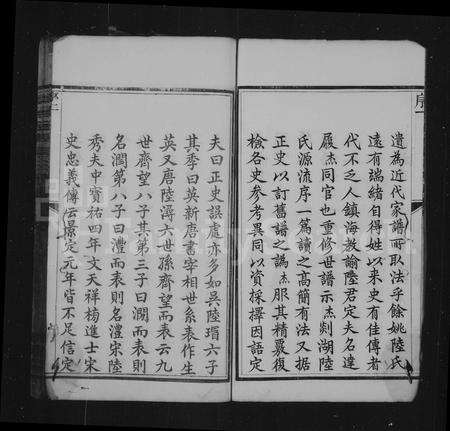 遺為近代家譜所取法乎餘姚陸氏
遠有端緒自得姓以來史有佳傳者
代不乏人鎮海教諭陸君定夫名達
履杰同官也重修世譜示杰剡湖陸
氏源流序一篇讀之高簡有法又據
正史以訂舊譜之譌杰服其精覈復
檢各史參考異同以資採擇因語定
夫曰正史誤處亦多如吳陸瑁六子
其季曰英新唐書宰相世系表作生
英又唐陸溥六世孫齊望而表云九
世齊望八子其第三子曰澗而表則
名潤第八子曰灃而表則名澧宋陸
秀夫中寶祐四年文天祥榜進士宋
史忠義傳云景定元年皆不足信定
序